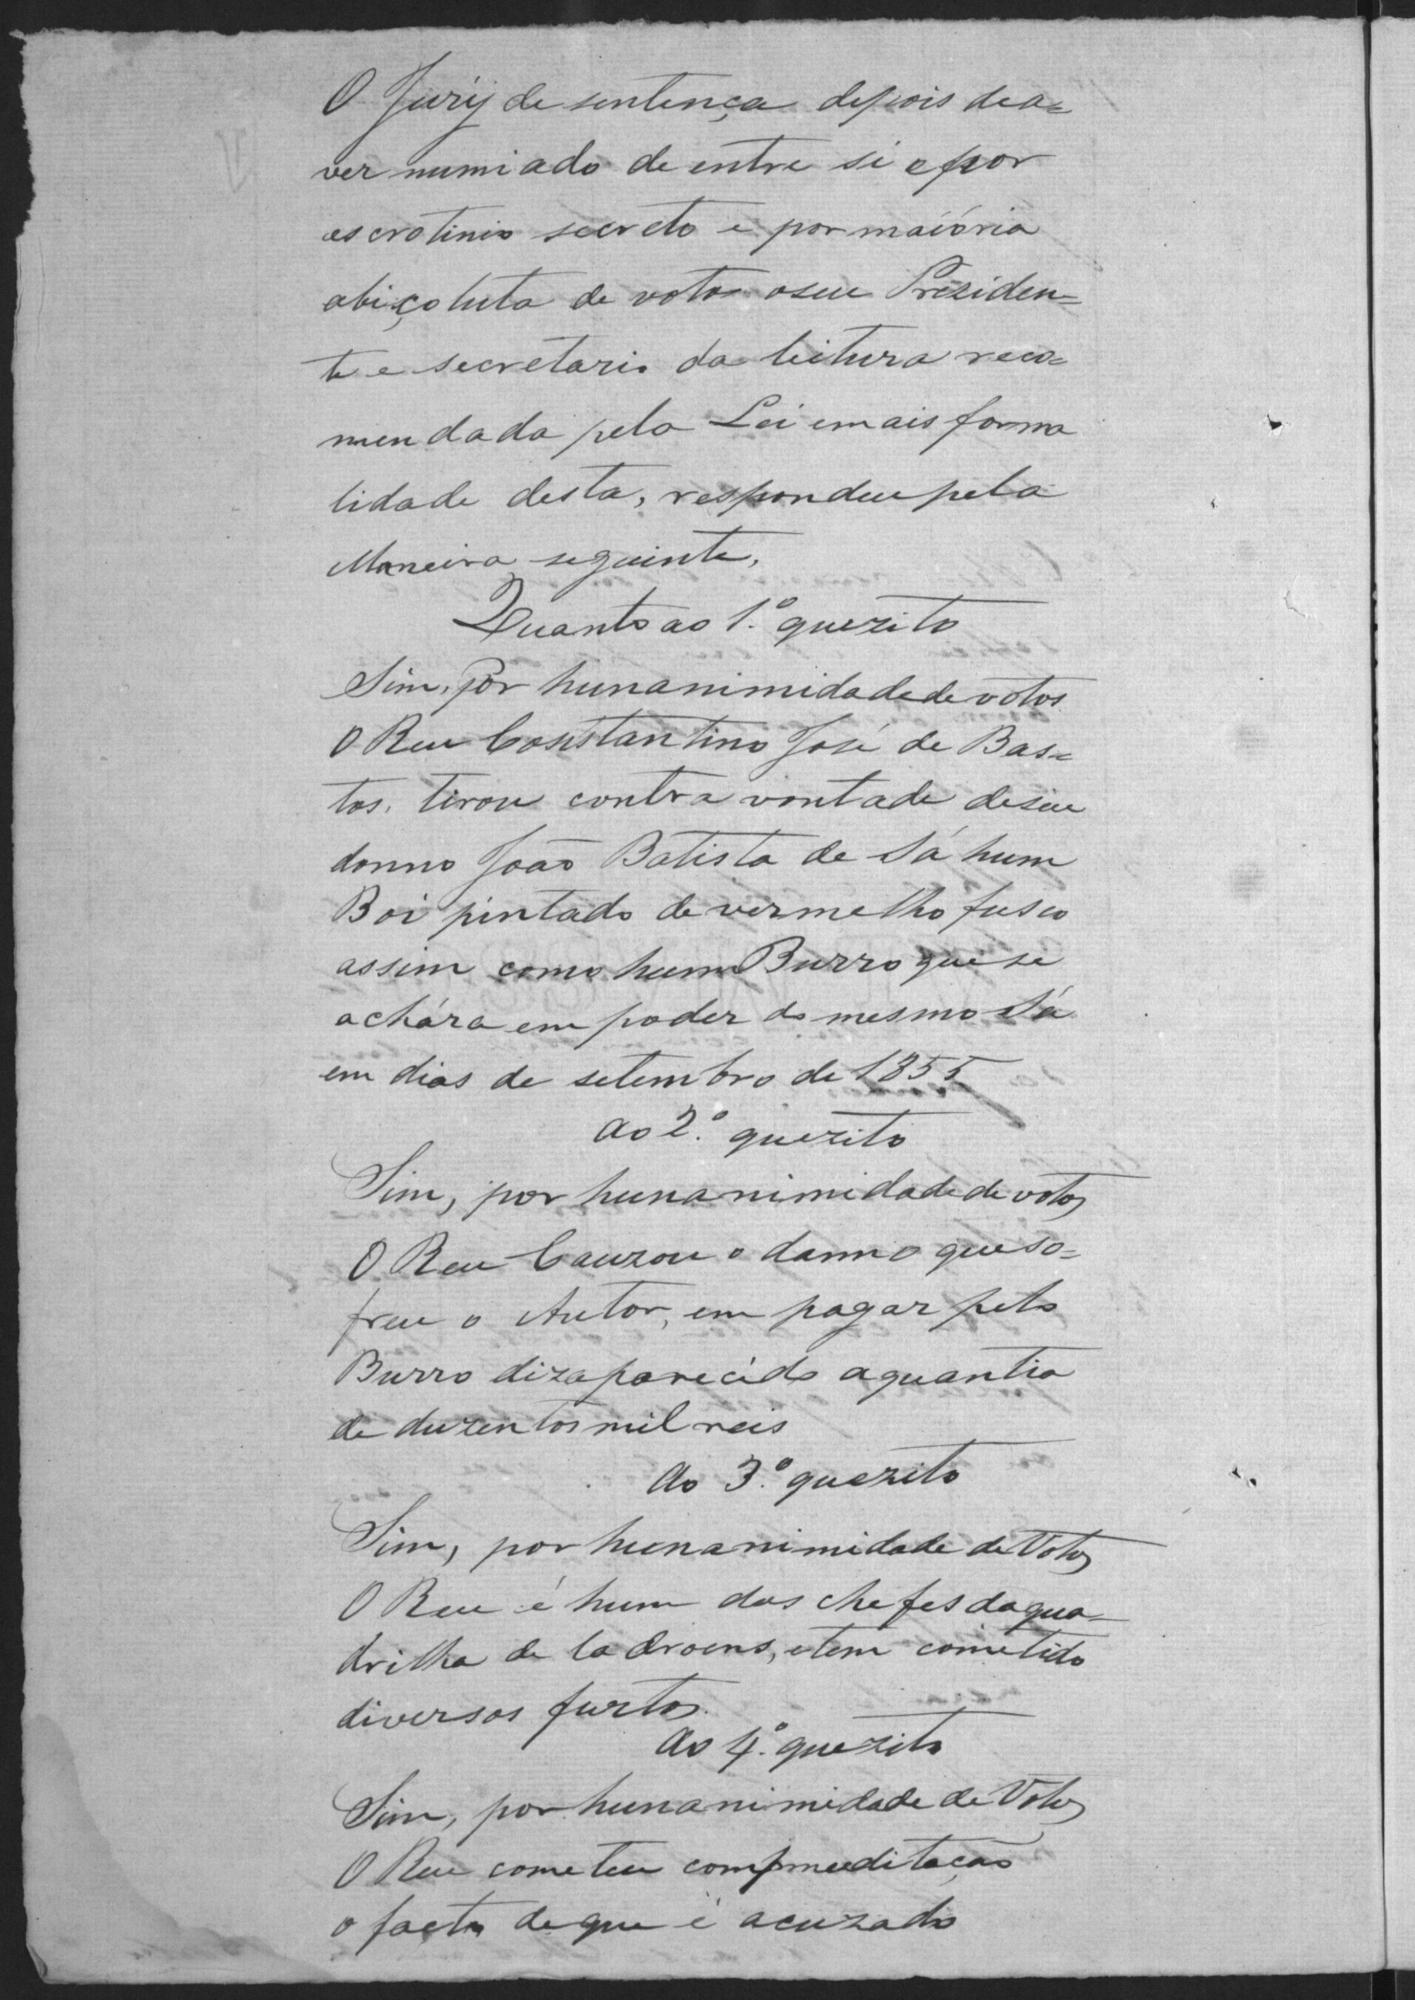 O Jury de sentença depois dea=
ver numiado de entre si epor
escrotinio secreto e por maiória
abiçoluta de votos oseu Preziden=
te e secretario da leitura reco=
mendada pela Lei emais forma
lidade desta, respondeu pela
Maneira seguinte,
Quanto ao 1.º quezito
Sim, Por hunanimidade de votos
O Reu Constantino José de Bas=
tos, tirou contra vontade deseu
donno João Batista de Sá hum
Boi pintado de vermelho fusco
assim como hum Burro que se
achára em poder do mesmo Sá
em dias de setembro de 1855
Ao 2.º quezito
Sim, por hunanimidade de votos
O Reu Cauzou o danno queso=
freu o Autor, em pagar pelo
Burro dizaparecido aquantia
de duzentos mil reis
Ao 3.º quezito
Sim, por hunanimidade de Votos
O Reu é hum dos chefes daqua=
drilha de ladroens, etem cometido
diversos furtos.
Ao 4.º quezito
Sim, por hunanimidade de Votos
O Reu cometeu compreeditação
o facto deque é acuzado